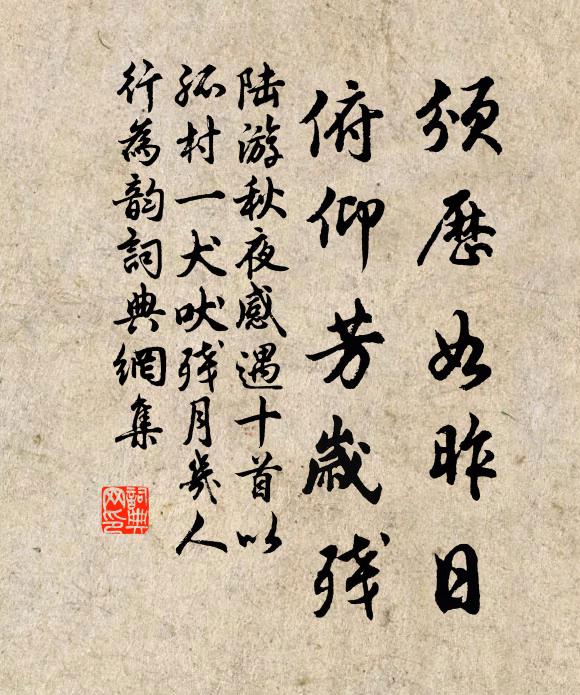 颁歷如昨日
俯仰芳歲殘
陆游秋夜感遇十首以
孤村一犬吠殘月幾人
行為韵詞典網集
詞典
网印